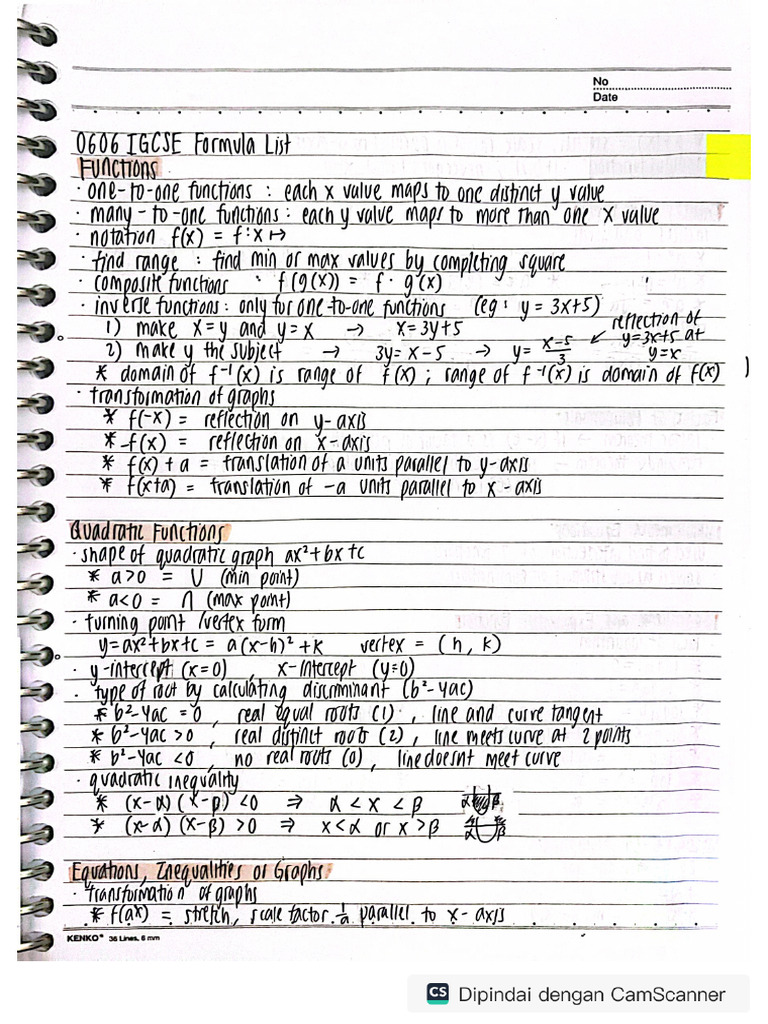 No
Date
0606 IGCSE Formula List
Functions
· one-to-one functions : each x value maps to one distinct y value
· many-to-one functions : each y value maps to more than one x value
· notation f(x) = f:x ↦
· find range : find min or max values by completing square
· composite functions : f(g(x)) = f · g(x)
· inverse functions : only for one-to-one functions (eg: y = 3x+5)
1) make x=y and y=x → x=3y+5
2) make y the subject → 3y=x-5 → y= (x-5)/3 ↙ reflection of y=3x+5 at y=x
* domain of f⁻¹(x) is range of f(x) ; range of f⁻¹(x) is domain of f(x)
· transformation of graphs
* f(-x) = reflection on y-axis
* -f(x) = reflection on x-axis
* f(x) + a = translation of a units parallel to y-axis
* f(x+a) = translation of -a units parallel to x-axis
Quadratic Functions
· shape of quadratic graph ax²+bx+c
* a>0 = ∪ (min point)
* a<0 = ∩ (max point)
· turning point /vertex form
y=ax²+bx+c = a(x-h)²+k vertex = (h, k)
· y-intercept (x=0) , x-intercept (y=0)
· type of root by calculating discriminant (b²-4ac)
* b²-4ac =0 , real equal roots (1) , line and curve tangent
* b²-4ac >0 , real distinct roots (2) , line meets curve at 2 points
* b²-4ac <0 , no real roots (0) , line doesnt meet curve
· quadratic inequality
* (x-α)(x-β) <0 ⇒ α < x < β α β
* (x-α)(x-β) >0 ⇒ x<α or x>β α β
Equations, Inequalities or Graphs
· transformation of graphs
* f(ax) = stretch, scale factor 1/a parallel to x-axis
KENKO® 36 Lines, 6 mm
CS Dipindai dengan CamScanner